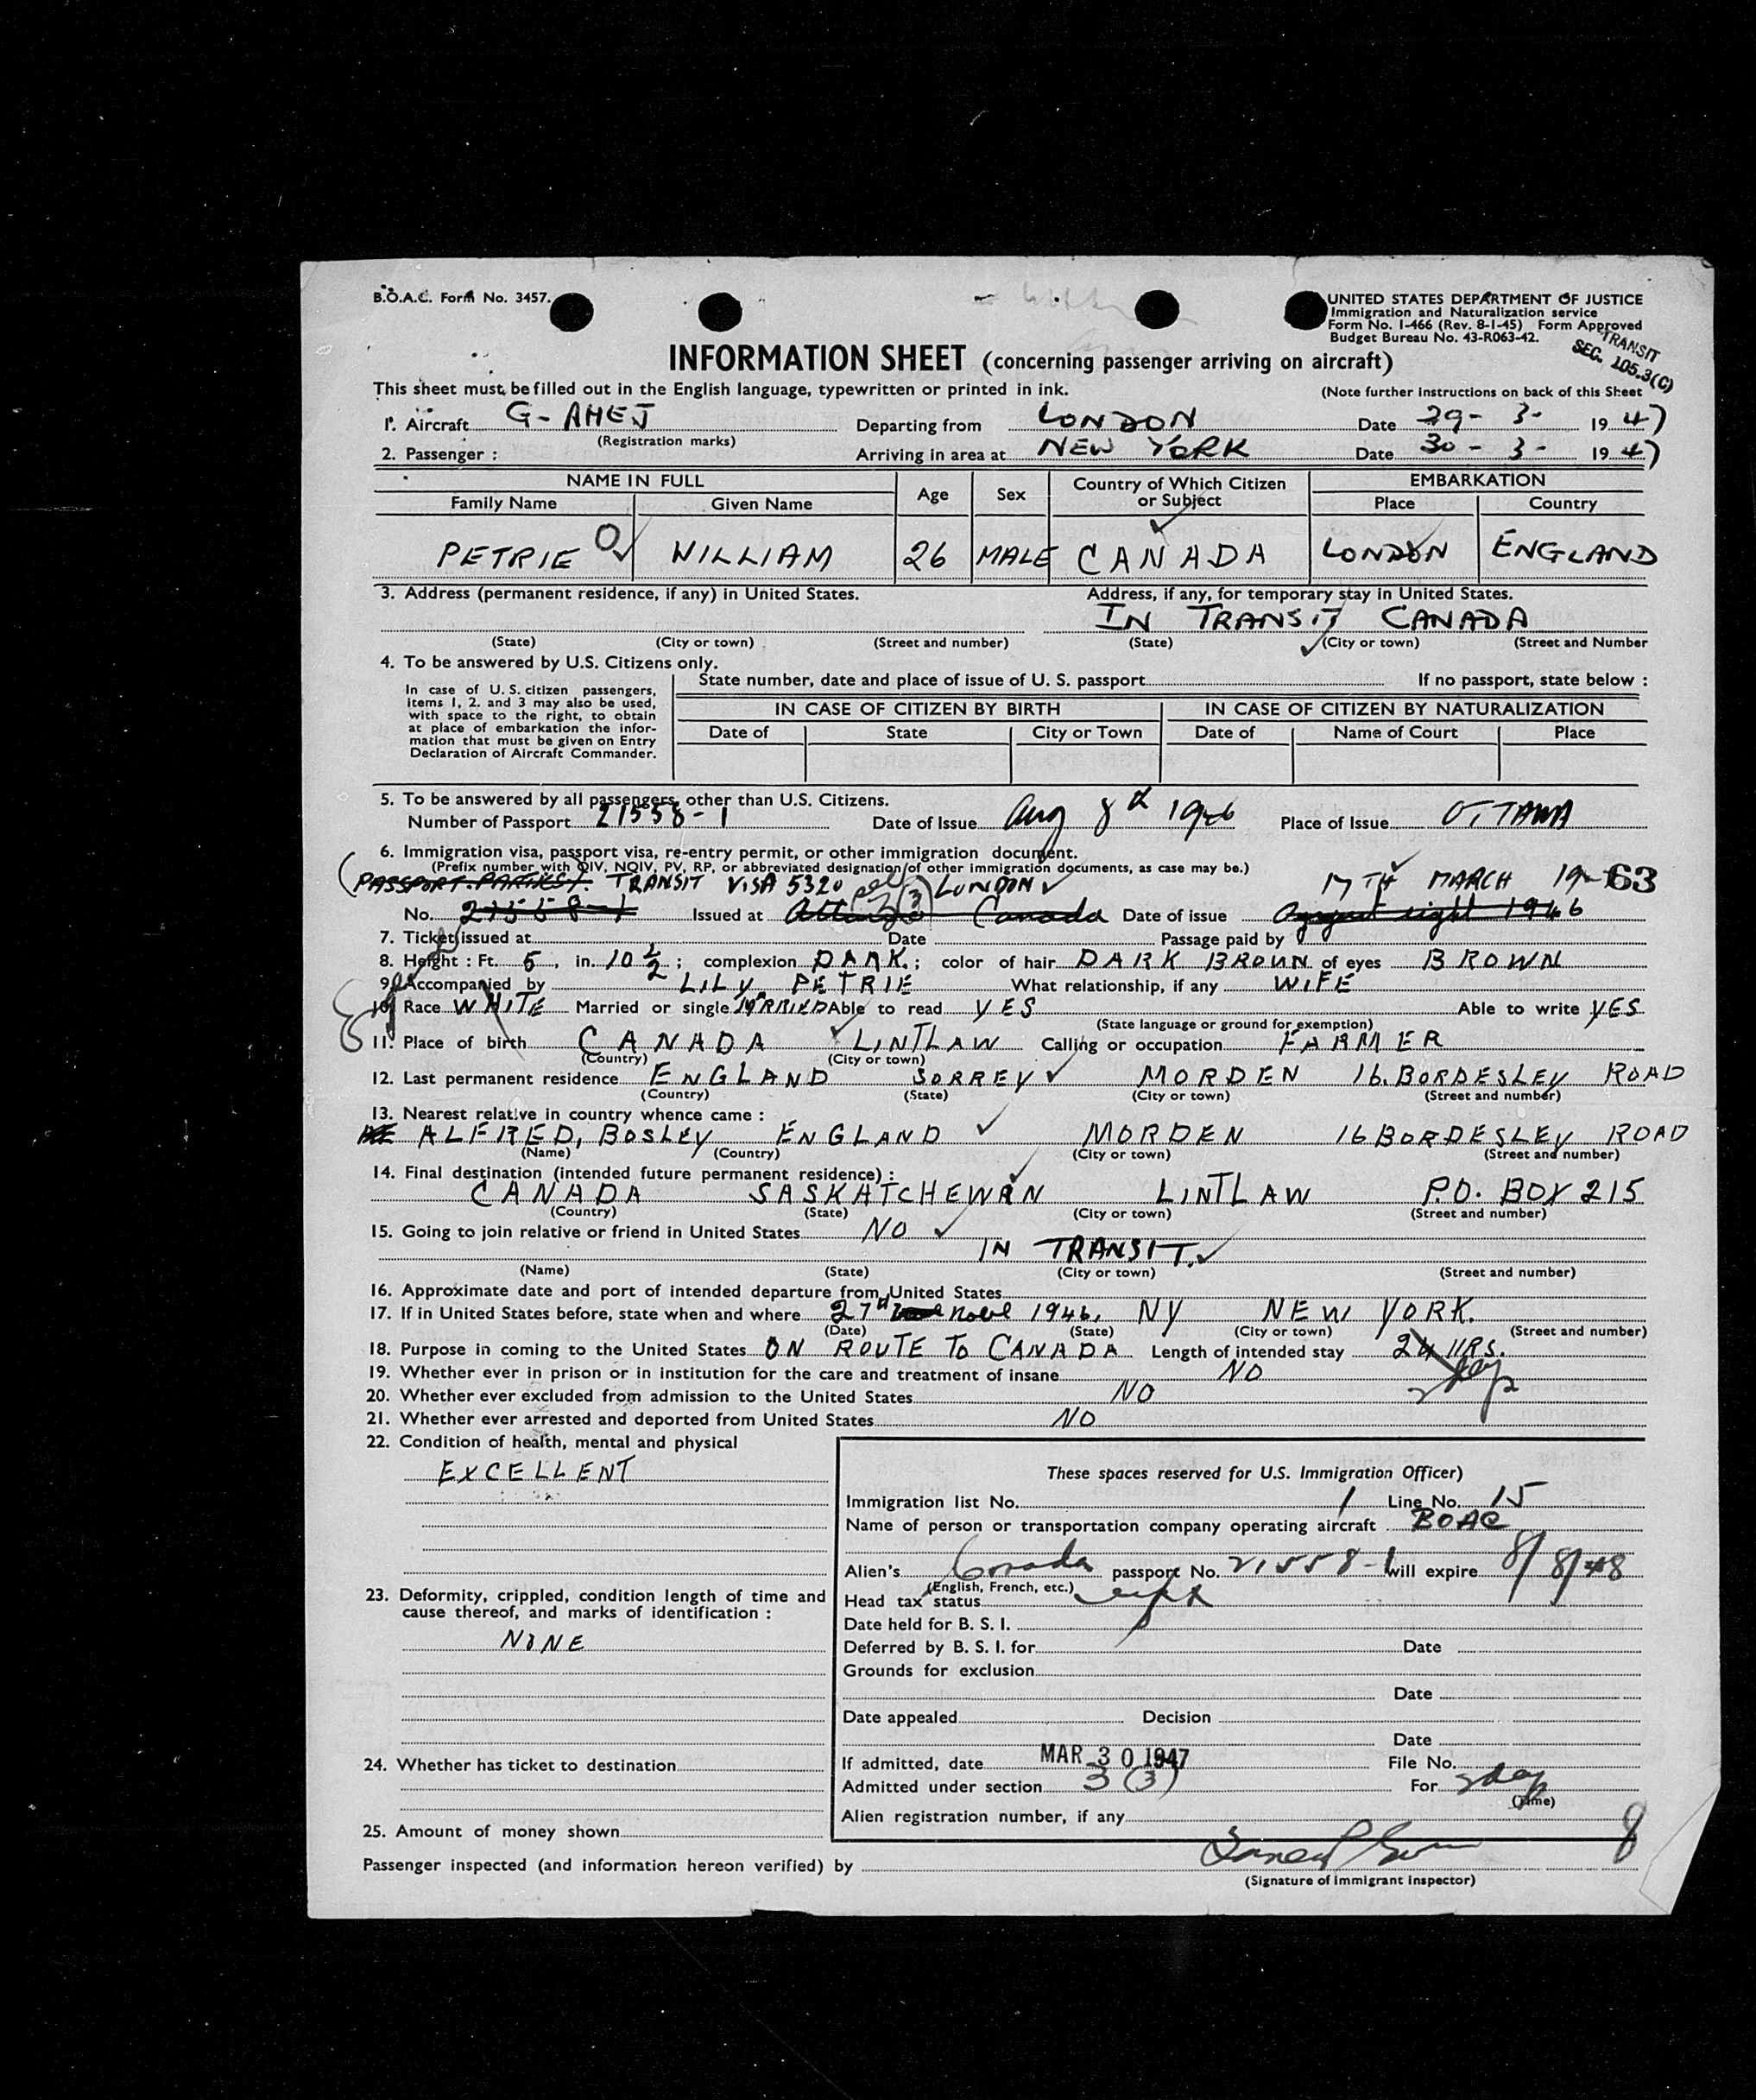 B.O.A.C. Form No. 3457.
UNITED STATES DEPARTMENT OF JUSTICE
Immigration and Naturalization service
Form No. I-466 (Rev. 8-1-45) Form Approved
Budget Bureau No. 43-R063-42.
TRANSIT
SEC. 105.3(C)
INFORMATION SHEET (concerning passenger arriving on aircraft)
This sheet must be filled out in the English language, typewritten or printed in ink. (Note further instructions on back of this Sheet
1. Aircraft G-AHEJ Departing from LONDON Date 29-3- 1947
(Registration marks)
2. Passenger : Arriving in area at NEW YORK Date 30-3- 1947
NAME IN FULL Age Sex Country of Which Citizen or Subject EMBARKATION
Family Name Given Name Place Country
PETRIE WILLIAM 26 MALE CANADA LONDON ENGLAND
3. Address (permanent residence, if any) in United States. Address, if any, for temporary stay in United States.
IN TRANSIT CANADA
(State) (City or town) (Street and number) (State) (City or town) (Street and Number
4. To be answered by U.S. Citizens only.
State number, date and place of issue of U. S. passport If no passport, state below :
In case of U. S. citizen passengers,
items 1, 2. and 3 may also be used,
with space to the right, to obtain
at place of embarkation the infor-
mation that must be given on Entry
Declaration of Aircraft Commander.
IN CASE OF CITIZEN BY BIRTH IN CASE OF CITIZEN BY NATURALIZATION
Date of State City or Town Date of Name of Court Place
5. To be answered by all passengers other than U.S. Citizens.
Number of Passport 21558-1 Date of Issue Aug 8th 1946 Place of Issue OTTAWA
6. Immigration visa, passport visa, re-entry permit, or other immigration document.
(Prefix number with QIV, NQIV, PV, RP, or abbreviated designation of other immigration documents, as case may be.)
TRANSIT VISA 5320 3(3) LONDON 17TH MARCH 19 63
No. 21558-1 Issued at Canada Date of issue August eight 1946
7. Ticket issued at Date Passage paid by
8. Height : Ft. 5, in. 10 1/2 ; complexion DARK. ; color of hair DARK BROUN of eyes BROWN
9. Accompanied by LILY PETRIE What relationship, if any WIFE
10. Race WHITE Married or single MARRIED Able to read YES Able to write YES
(State language or ground for exemption)
11. Place of birth CANADA LINTLAW Calling or occupation FARMER
(Country) (City or town)
12. Last permanent residence ENGLAND SORREY MORDEN 16. BORDESLEY ROAD
(Country) (State) (City or town) (Street and number)
13. Nearest relative in country whence came :
ALFRED, BOSLEY ENGLAND MORDEN 16 BORDESLEY ROAD
(Name) (Country) (City or town) (Street and number)
14. Final destination (intended future permanent residence) :
CANADA SASKATCHEWAN LINTLAW P.O. BOX 215
(Country) (State) (City or town) (Street and number)
15. Going to join relative or friend in United States NO
IN TRANSIT.
(Name) (State) (City or town) (Street and number)
16. Approximate date and port of intended departure from United States
17. If in United States before, state when and where 27th 1946, NY NEW YORK.
(Date) (State) (City or town) (Street and number)
18. Purpose in coming to the United States ON ROUTE TO CANADA Length of intended stay 24 HRS.
19. Whether ever in prison or in institution for the care and treatment of insane NO
20. Whether ever excluded from admission to the United States NO
21. Whether ever arrested and deported from United States NO
22. Condition of health, mental and physical
EXCELLENT
23. Deformity, crippled, condition length of time and
cause thereof, and marks of identification :
NONE
24. Whether has ticket to destination
25. Amount of money shown
These spaces reserved for U.S. Immigration Officer)
Immigration list No. 1 Line No. 15
Name of person or transportation company operating aircraft BOAC
Alien's Canada passport No. 21558-1 will expire 8/8/48
(English, French, etc.)
Head tax status
Date held for B. S. I.
Deferred by B. S. I. for Date
Grounds for exclusion
Date
Date appealed Decision
Date
If admitted, date MAR 30 1947 File No.
Admitted under section 3(3) For 2 day
(Time)
Alien registration number, if any
8
Passenger inspected (and information hereon verified) by
(Signature of Immigrant Inspector)